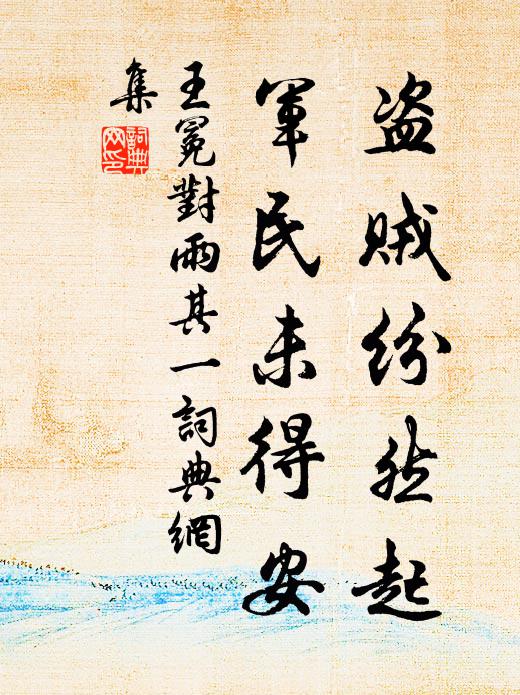 盗贼纷然起
军民未得安
王冕對雨其一詞典網
集
詞典
网印